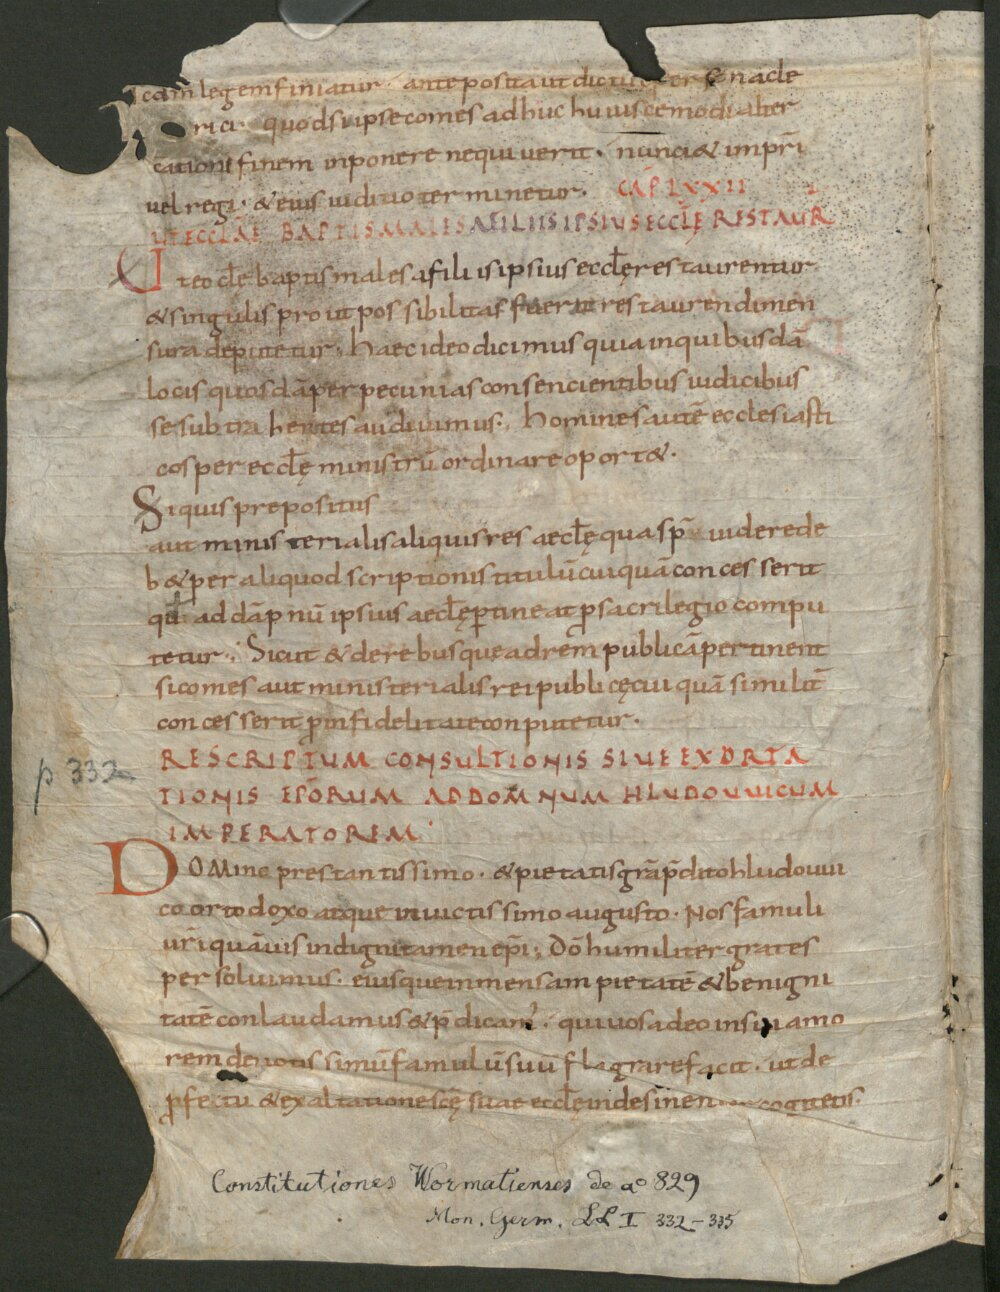 canonicam legem finiatur. ante posita ut dictum
rici. quod si ipse comes adhuc huiuscemodi alter
cationi finem inponere nequiuerit. nunciet impri
uel regi. et eius iuditio terminetur. CAP LXXII
UT ECCLAE BAPTISMALES A FILIIS IPSIUS ECCLĘ RESTAUR
Ut eccłe baptismales a filiis ipsius eccłę restaurentur
& singulis prout possibilitas fuerit restaurendi men
sura deputetur. haec ideo dicimus quia in quibusdā
locis quosdā per pecunias consencientibus iudicibus
se subtrahentes audiuimus. homines autē ecclesiasti
cos per eccłę ministrū ordinare oport&.
Si quis prepositus
aut ministerialis aliquis res aecłę quas p̄uidere de
b& per aliquod scriptionis titulū cuiquā concesserit
qđ ad dāpnū ipsius aecłę ꝑtineat ꝓ sacrilegio compu
tetur. Sicut & de rebus que ad rēm publicā pertinent
si comes aut ministerialis rei publicę cuiquā similit̄
concesserit ꝓ infidelitate conputetur.
RESCRIPTUM CONSULTIONIS SIUE EXORTA
TIONIS EP̄ORUM AD DOM̄NUM HLUDOUUICUM
IMPERATOREM
DOMino prestantissimo. & pietatis grā p̄dito hludouui
co ortodoxo atque inuictissimo augusto. Nos famuli
ūri quāuis indigni tamen ep̄i. Dō humiliter grates
persoluimus. eiusque inmensam pietatē & benigni
tatē conlaudamus & p̄dicam̄. qui uos adeo in sui amo
rem deuotissimū famulū suū flagrare facit. ut de
ꝓfectu & exaltatione scę̄ suae eccłę indesinenter cogitetis.
p 332
Constitutiones Wormatienses de aº 829
Mon. Germ. LL I 332–335